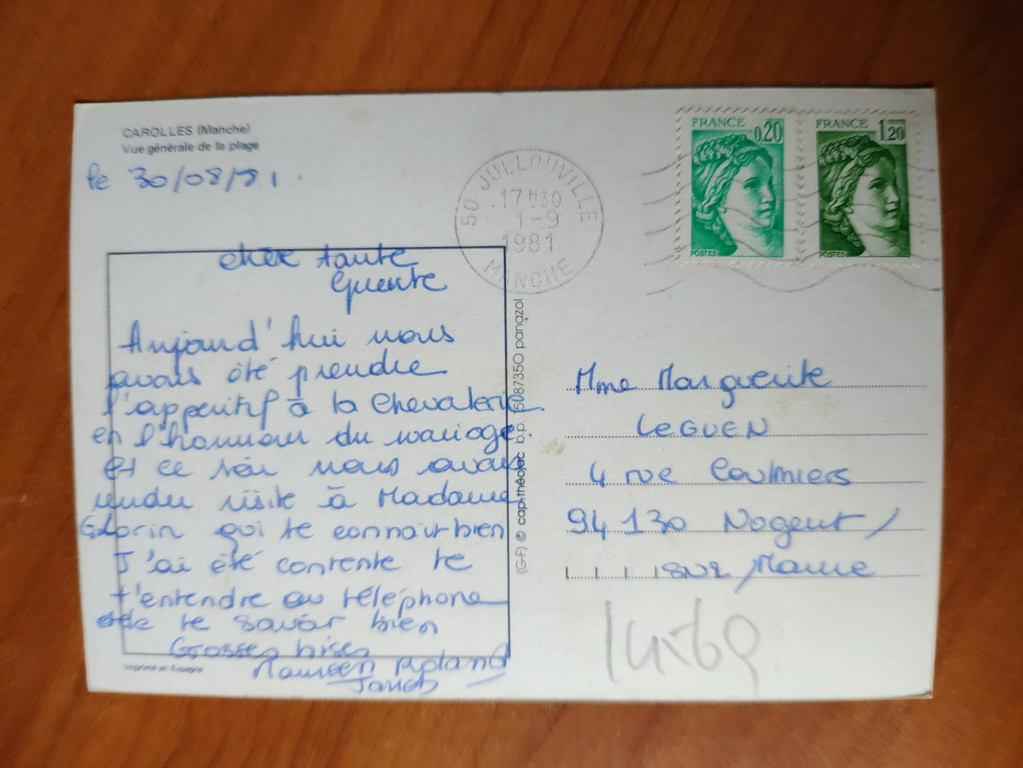 CAROLLES (Manche)
Vue générale de la plage
le 30/08/81.
chère tante
Guerite
Aujourd'hui nous
avons été prendre
l'apperitif à la Chevalerie
en l'honneur du mariage.
et ce soir nous avons
rendu visite à Madame
qui te connait bien
J'ai été contente te
t'entendre au téléphone
et de te savoir bien
Grosses bises
Maureen Roland
Imprimé en Espagne
(G-F) © cap-théojac b.p. 15087350 panazol
50 JULLOUVILLE
17H30
1-9
1981
MANCHE
FRANCE 0,20
POSTES
FRANCE 1,20
POSTES
Mme Marguerite
LEGUEN
4 rue Coulmiers
94 130 Nogent /
sur / Marne